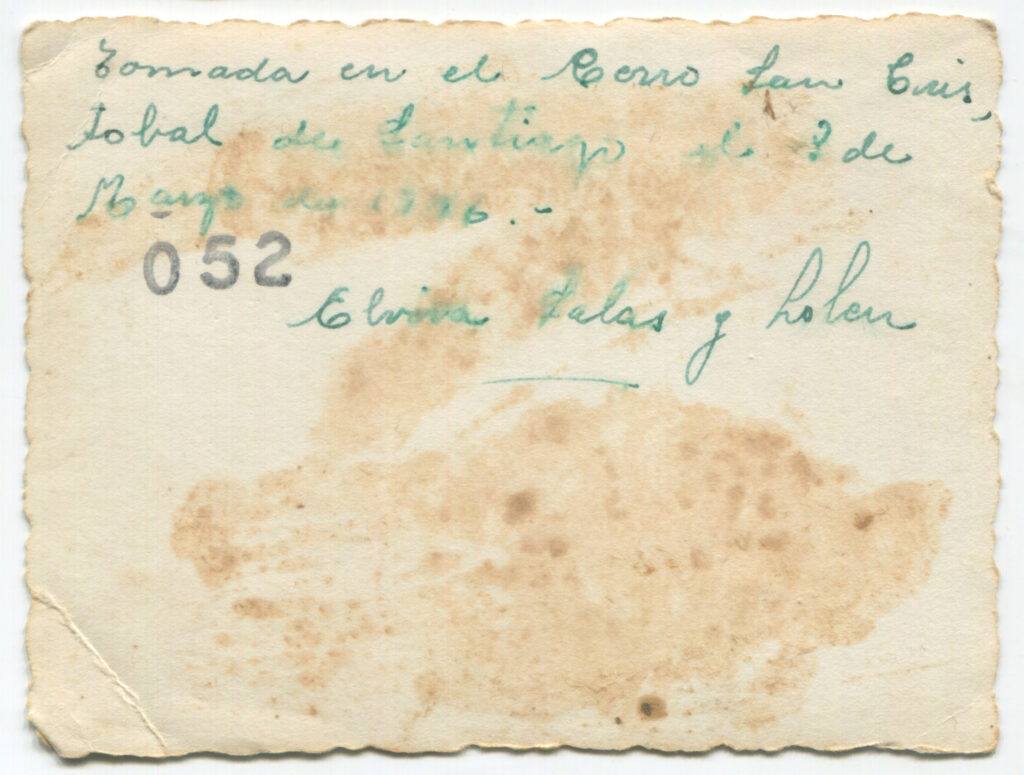 Tomada en el Cerro San Cris,
tobal de Santiago el de
Marzo de
052
Elvira Salas y